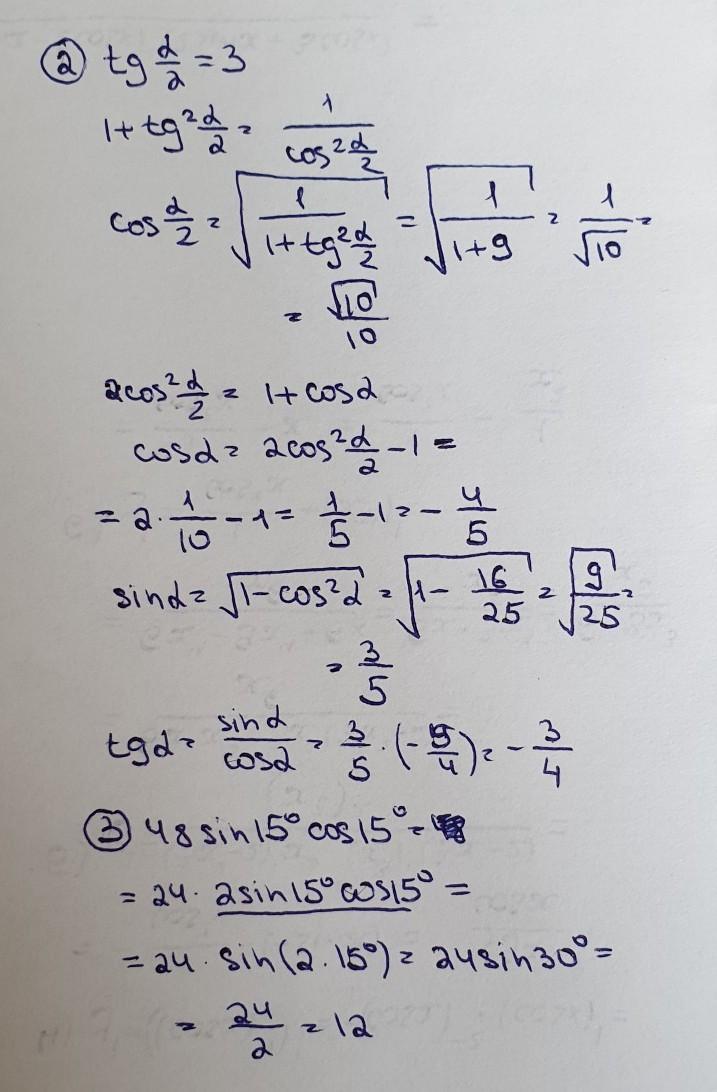 ② tg α/2 = 3
1 + tg² α/2 = 1/cos² α/2
cos α/2 = √(1/(1 + tg² α/2)) = √(1/(1+9)) = 1/√10 =
= √10/10
2cos² α/2 = 1 + cosα
cosα = 2cos² α/2 - 1 =
= 2 · 1/10 - 1 = 1/5 - 1 = - 4/5
sinα = √(1 - cos²α) = √(1 - 16/25) = √(9/25) =
= 3/5
tgα = sinα/cosα = 3/5 · (- 5/4) = - 3/4
③ 48 sin15° cos15° =
= 24 · 2sin15° cos15° =
= 24 · sin(2 · 15°) = 24sin30° =
= 24/2 = 12